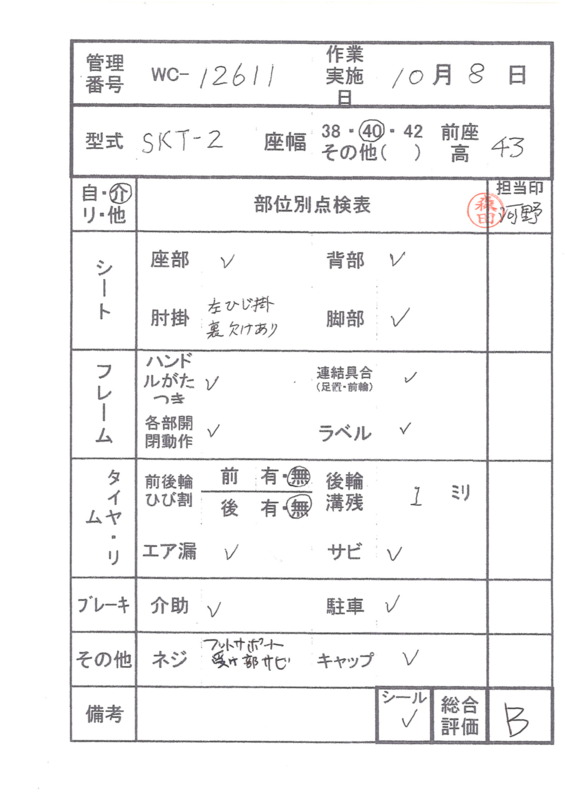 管理番号 WC-12611 作業実施日 10月8日
型式 SKT-2 座幅 38・40・42 その他( ) 前座高 43
自・介 リ・他 部位別点検表 担当印
森田 河野
シート 座部 ✓ 背部 ✓
肘掛 左ひじ掛 裏欠けあり 脚部 ✓
フレーム ハンドルがたつき ✓ 連結具合 (足置・前輪) ✓
各部開閉動作 ✓ ラベル ✓
タイヤ・リム 前後輪ひび割 前 有・無 後 有・無 後輪溝残 1 ミリ
エア漏 ✓ サビ ✓
ブレーキ 介助 ✓ 駐車 ✓
その他 ネジ フットサポート 受け部サビ キャップ ✓
備考 シール ✓ 総合評価 B